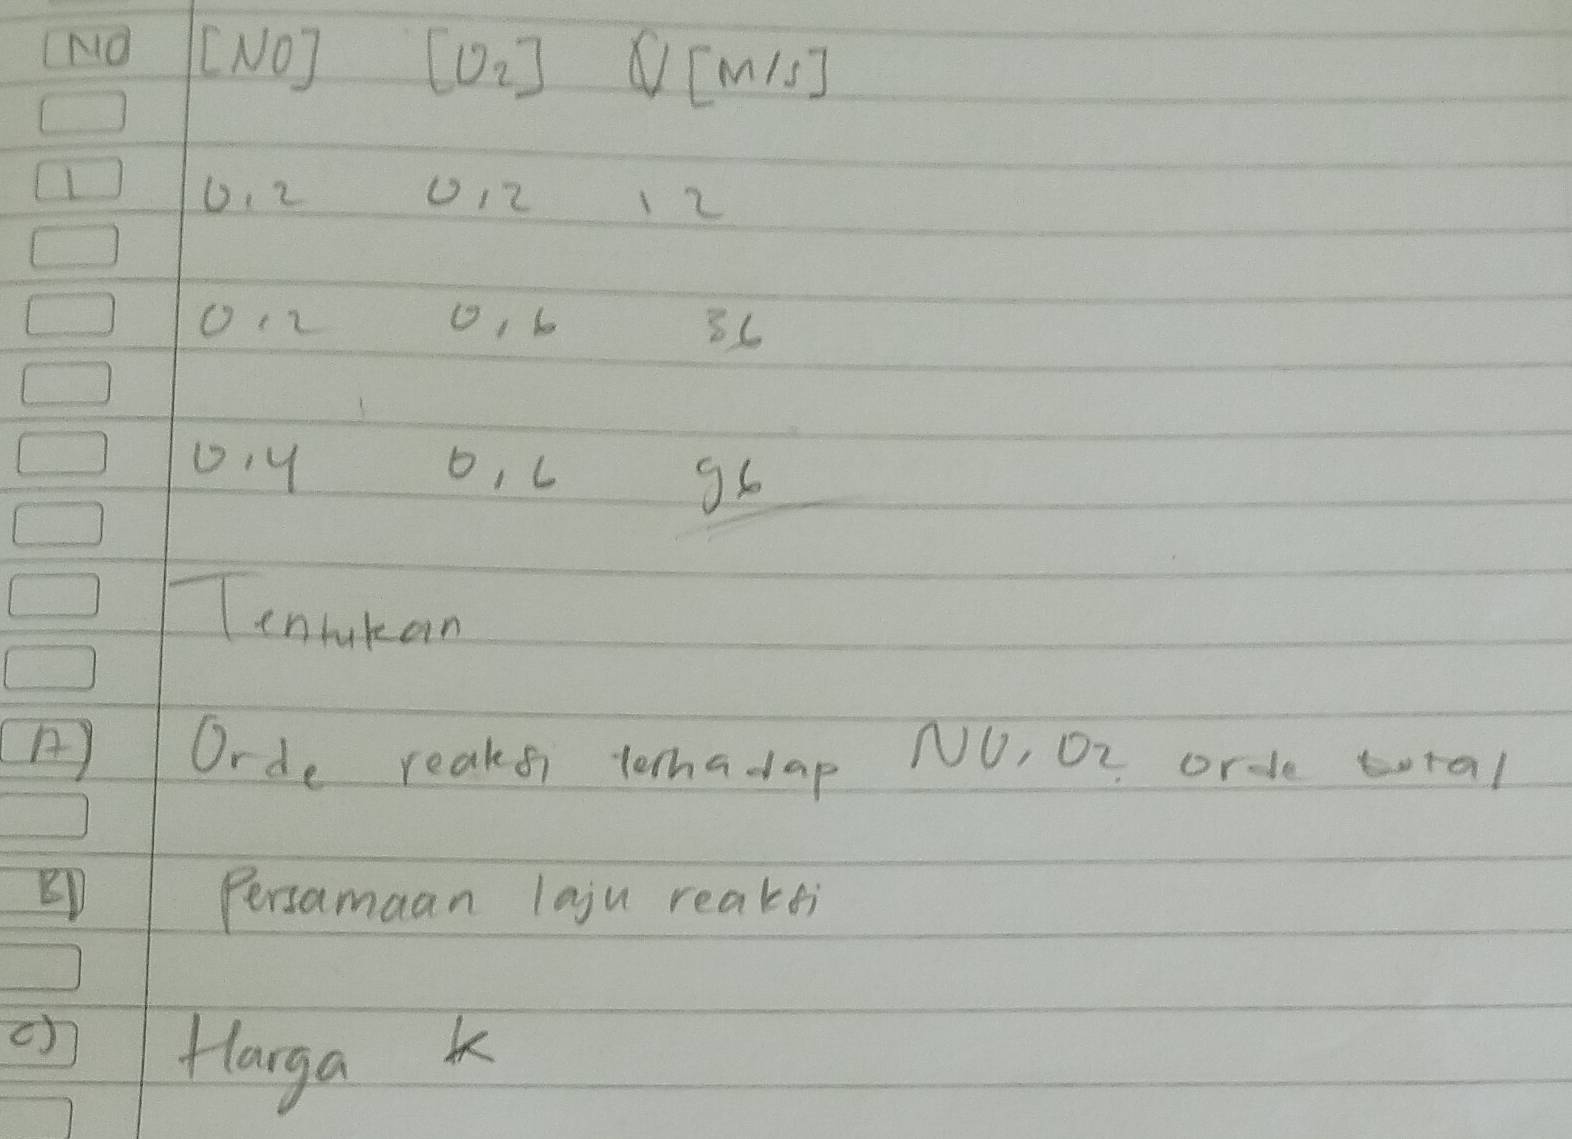 NO [NO] [O2] V [M/s]
1 0,2 0,2 12
0,2 0,6 36
0,4 0,6 96
Tentukan
A) Orde reaksi terhadap NO, O2. orde total
B) Persamaan laju reaksi
c) Harga k